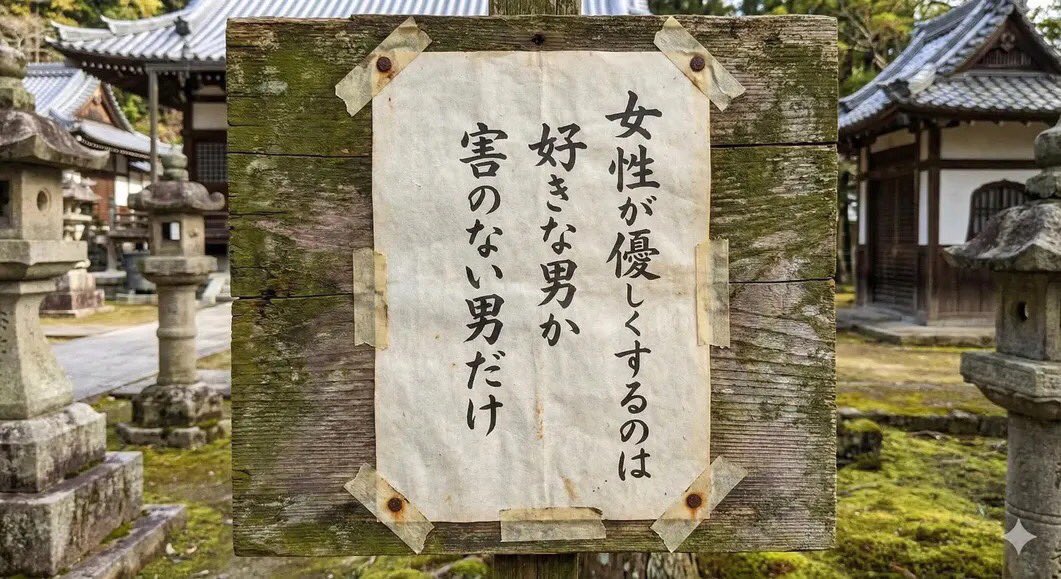 女性が優しくするのは
好きな男か
害のない男だけ